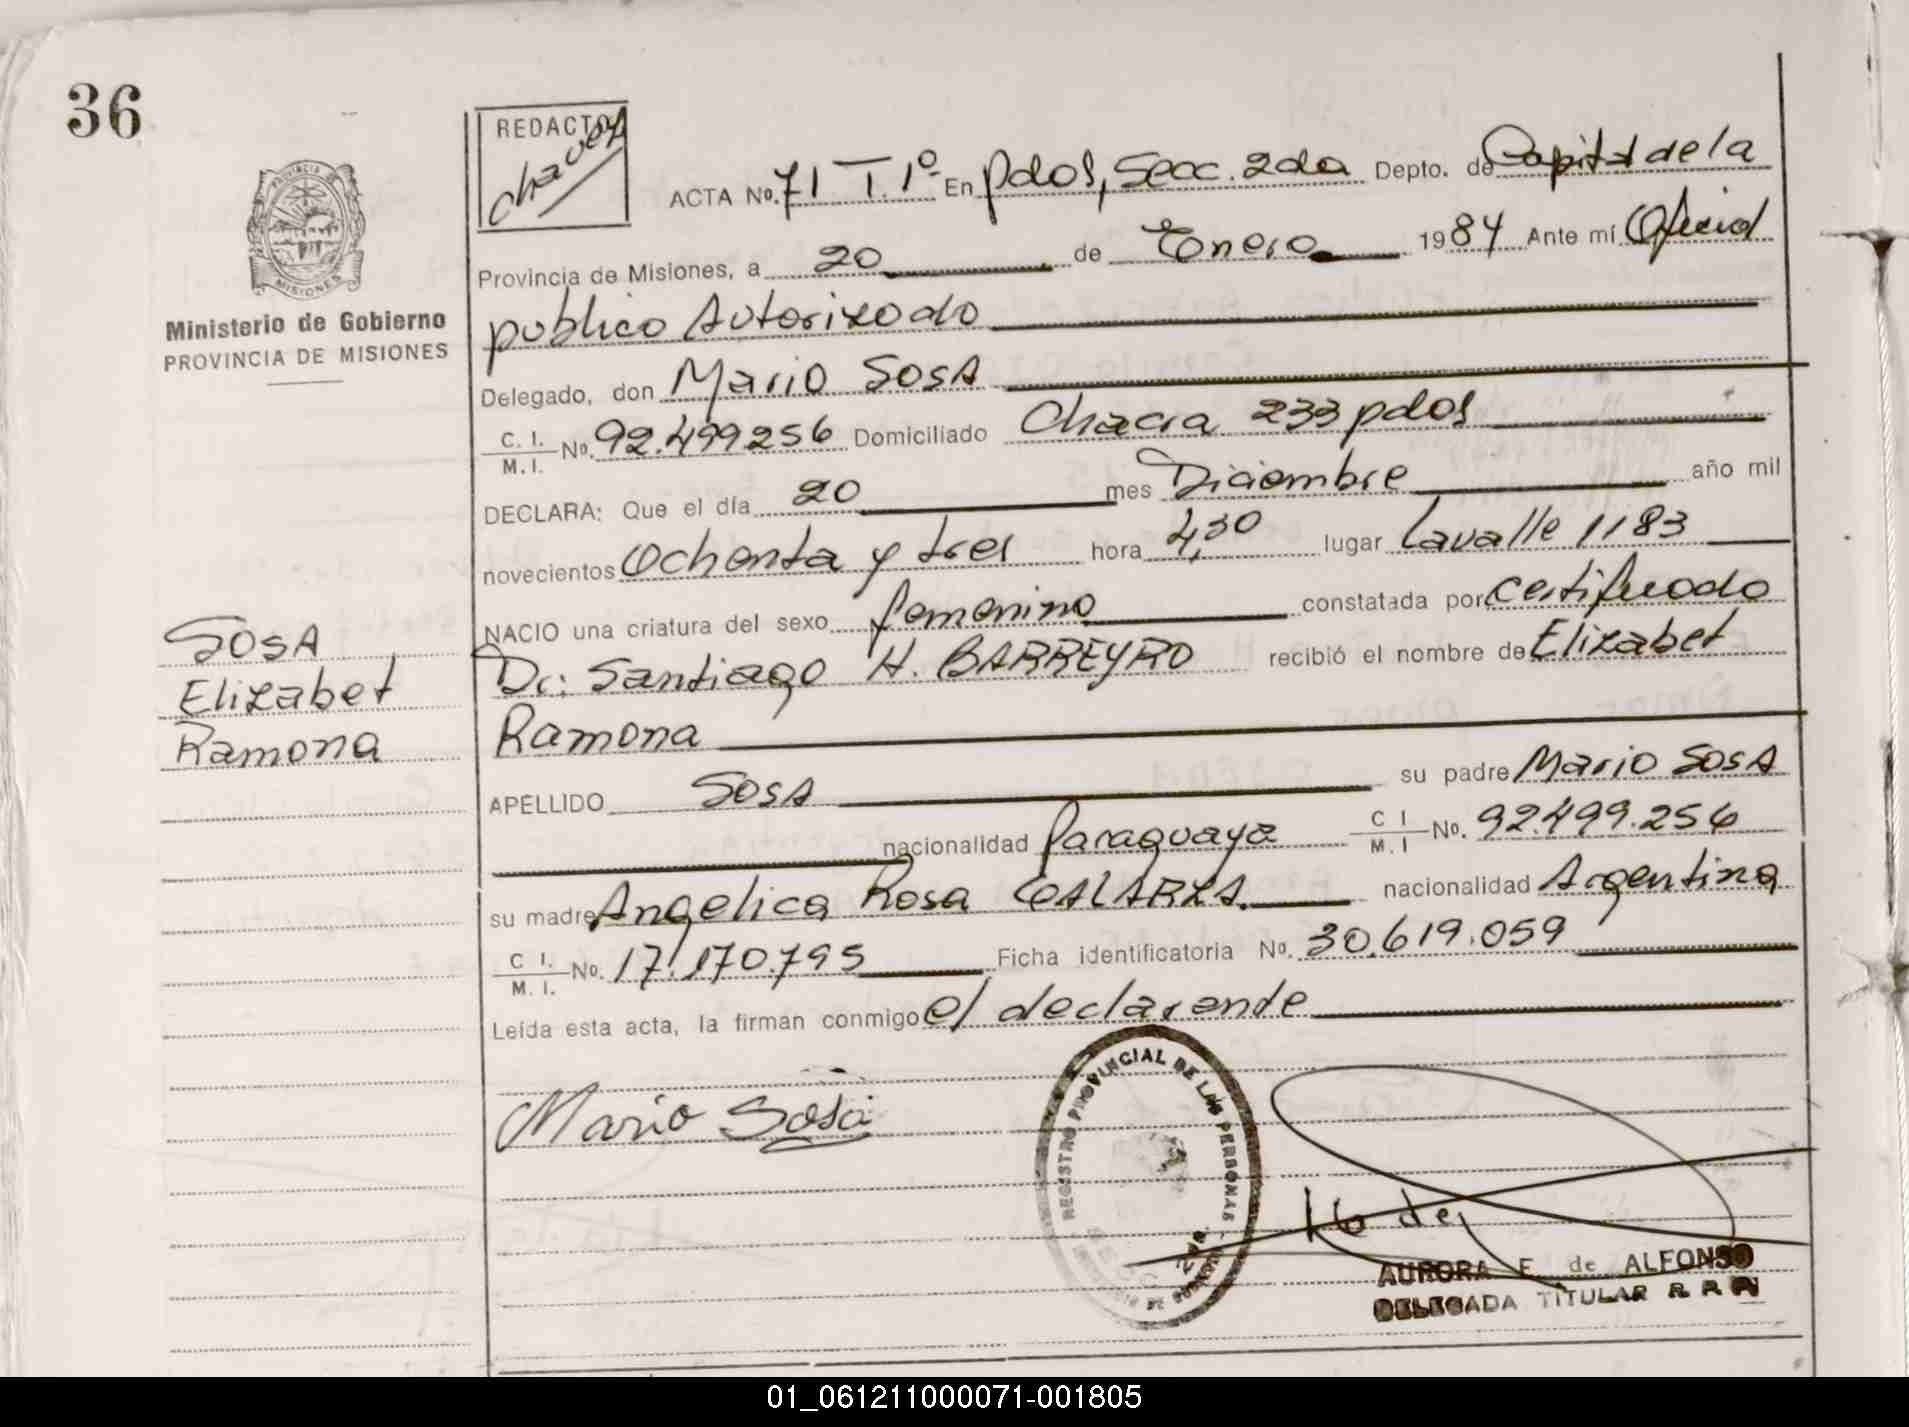 36
REDACTO
Chavez
PROVINCIA DE
MISIONES
Ministerio de Gobierno
PROVINCIA DE MISIONES
ACTA No. 71 T.1º En pdas, Secc. 2da Depto. de Capital de la
Provincia de Misiones, a 20 de Enero 1984 Ante mí Oficial
publico Autorizado
Delegado, don Mario SOSA
C. I. / M. I. No. 92.499256 Domiciliado Chacra 233 pdas
DECLARA: Que el día 20 mes Diciembre año mil
novecientos Ochenta y tres hora 4,30 lugar Lavalle 1183
NACIO una criatura del sexo femenino constatada por certificado
Dr: Santiago H. BARREYRO recibió el nombre de Elizabet
Ramona
SOSA
Elizabet
Ramona
APELLIDO SOSA su padre Mario SOSA
nacionalidad Paraguaya C I / M. I No. 92.499.256
su madre Angelica Rosa GALARZA. nacionalidad Argentina
C I. / M. I. No. 17.170.795 Ficha identificatoria No. 30.619.059
Leída esta acta, la firman conmigo el declarante
Mario Sosa
REGISTRO PROVINCIAL DE LAS PERSONAS
AURORA F. de ALFONSO
DELEGADA TITULAR R. P. P.
01_061211000071-001805